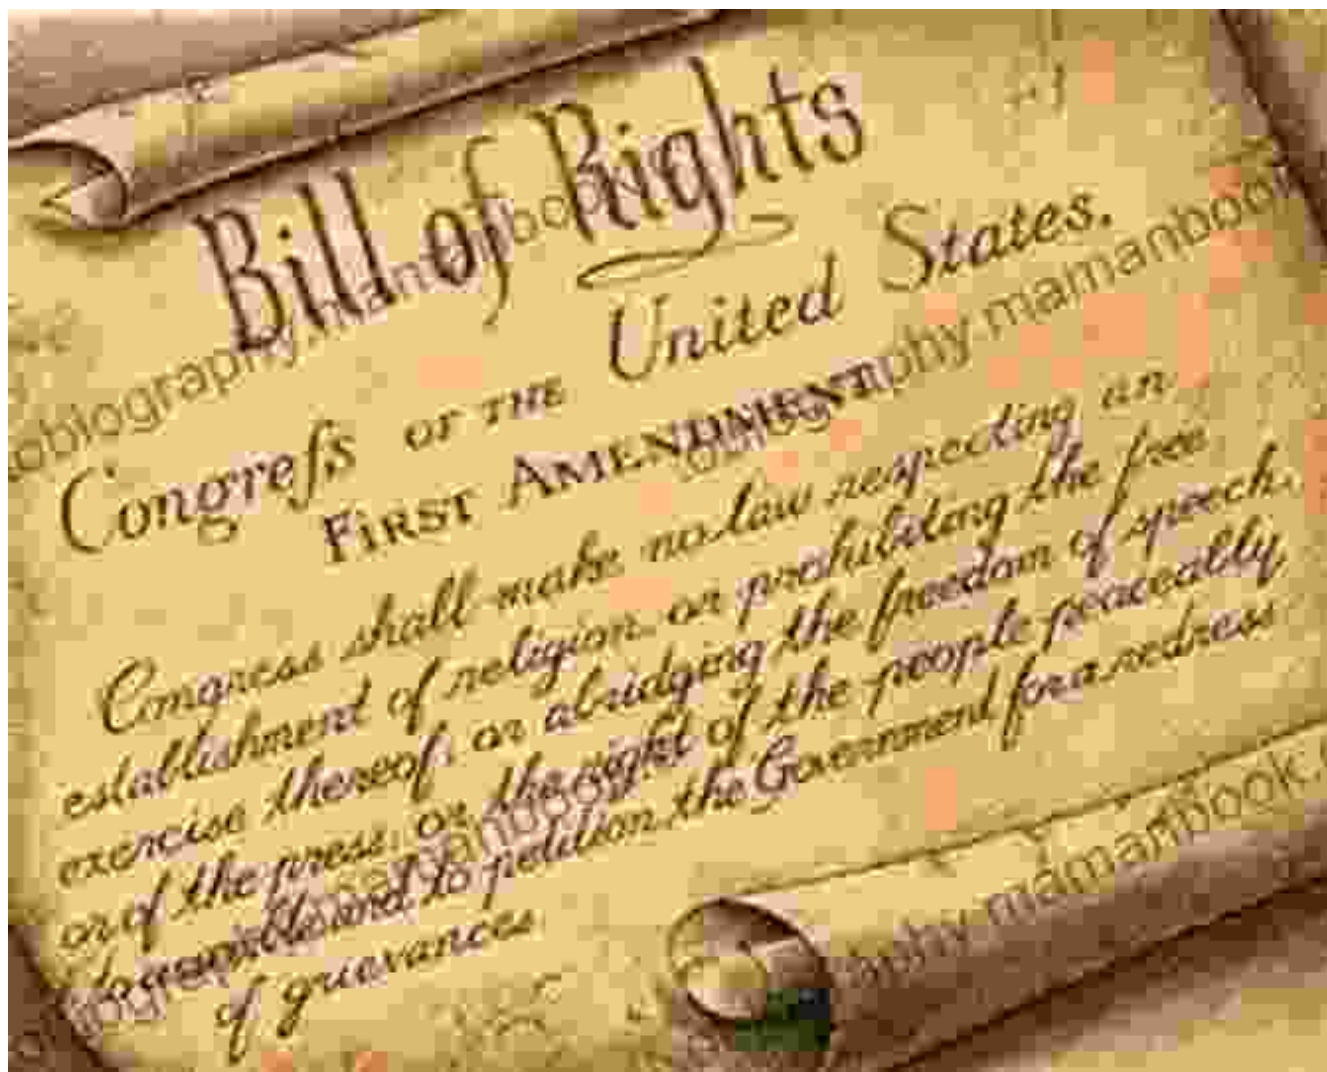 Bill of Rights
Congreſs OF THE United States.
FIRST AMENDMENT
Congress shall make no law respecting an
establishment of religion or prohibiting the free
exercise thereof; or abridging the freedom of speech,
or of the press; or the right of the people peaceably
to assemble and to petition the Government for a redress
of grievances
mamanbook
phy.mamanbook
phy.mamanbook.